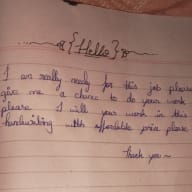 {Hello}
I am really ready for this job please
give me a chance to do your work
please I will your work in this
handwriting with affordable price please
Thank you ~